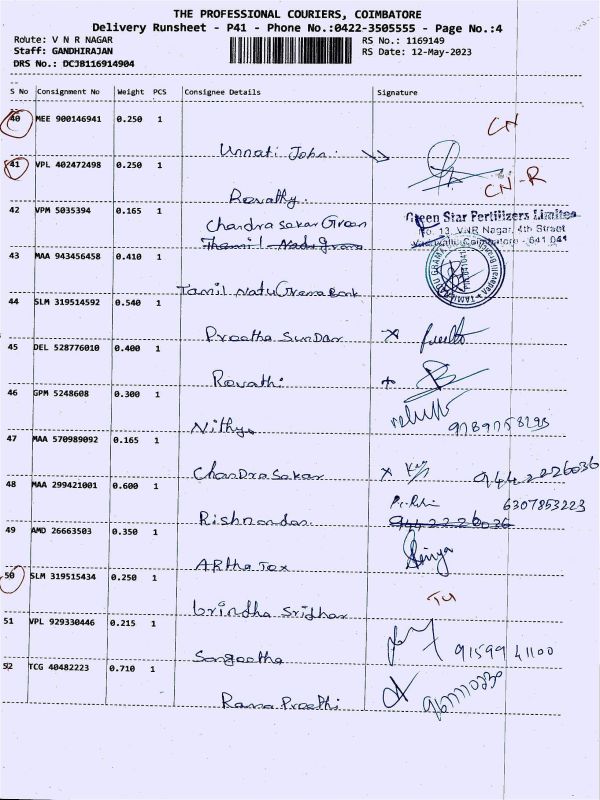 THE PROFESSIONAL COURIERS, COIMBATORE
Delivery Runsheet - P41 - Phone No.:0422-3505555 - Page No.:4
Route: V N R NAGAR
RS No.: 1169149
Staff: GANDHIRAJAN
RS Date: 12-May-2023
DRS No.: DCJB116914904
S No Consignment No Weight PCS Consignee Details Signature
40 MEE 900146941 0.250 1
CN
Unnati John
41 VPL 402472498 0.250 1
CN-R
Revathy
42 VPM 5035394 0.165 1
Chandra Sekar Green
Green Star Fertilizers Limited
No. 13, VNR Nagar, 4th Street
Thamil Nadu Grama
Coimbatore - 641 041
43 MAA 943456458 0.410 1
Tamil Natu Grama Bank
44 SLM 319514592 0.540 1
Preetha Sundar X
45 DEL 528776010 0.400 1
Revathi
46 GPM 5248608 0.300 1
Nithya 9789758293
47 MAA 570989092 0.165 1
ChanDra Sekar X 944 2226036
48 MAA 299421001 0.600 1
6307853223
Rishnandan 944 2226036
49 AMD 26663503 0.350 1
ARtha Tex
50 SLM 319515434 0.250 1
brindha Sridhar
51 VPL 929330446 0.215 1
Sangeetha 91599 41100
52 TCG 40482223 0.710 1
Rama Preethi